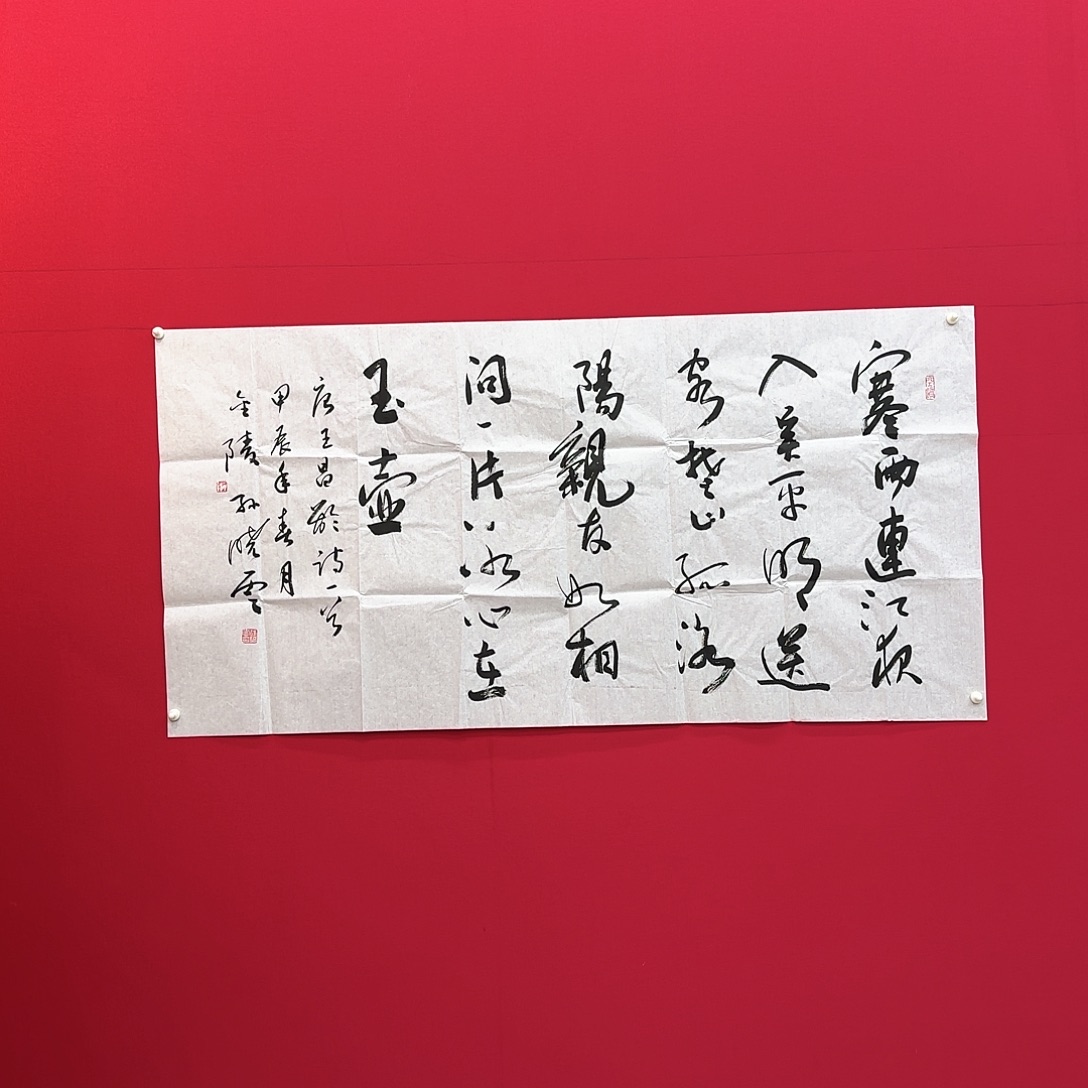 寒雨連江夜
入吴平明送
客楚山孤洛
陽親友如相
問一片冰心在
玉壺
唐王昌齡诗一首
甲辰年春月
金陵孙晓雲